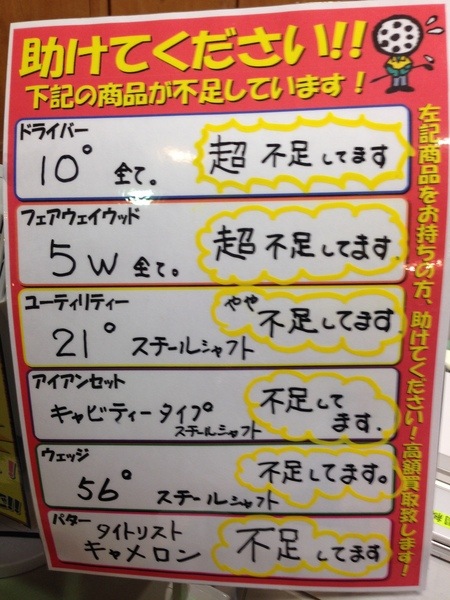 助けてください!!
下記の商品が不足しています！
ドライバー
10° 全て。
超 不足してます
フェアウェイウッド
5W 全て。
超 不足してます.
ユーティリティー
21° スチールシャフト
やや
不足してます.
アイアンセット
キャビティータイプ
スチールシャフト
不足して
ます.
ウェッジ
56° スチールシャフト
不足してます。
パター
タイトリスト
キャメロン
不足してます
左記商品をお持ちの方、助けてください！高額買取致します！